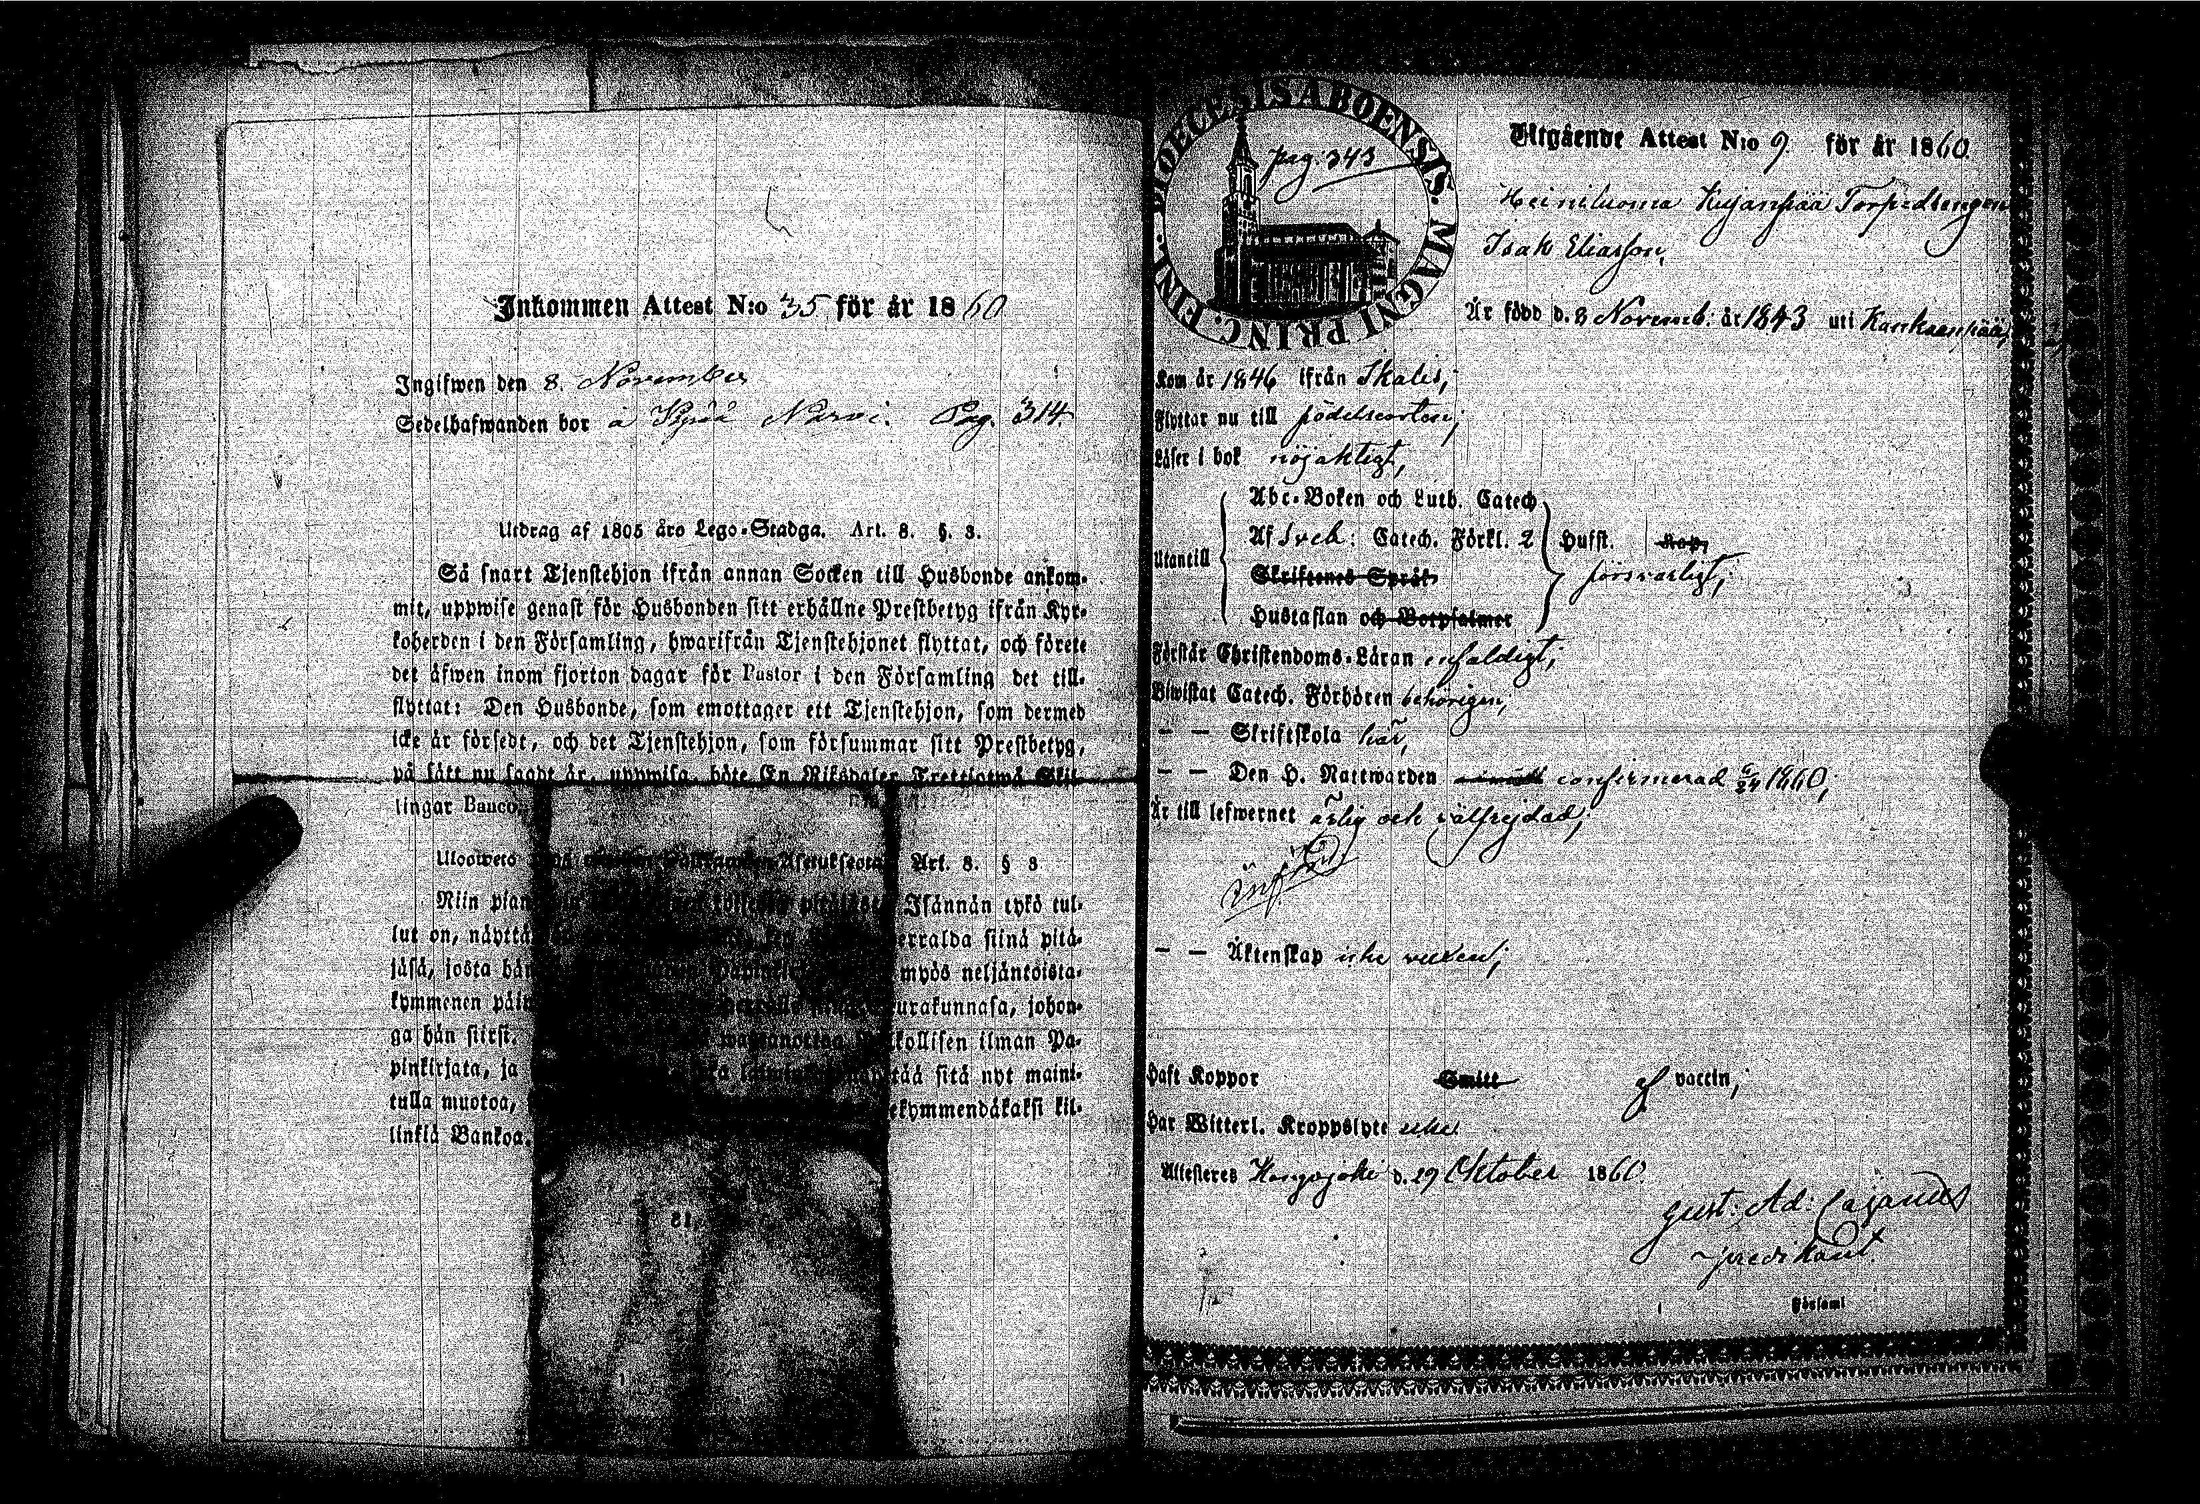 Inkommen Attest N:o 35 för år 1860
Ingifwen den 8. November
Sedelhafwanden bor å Kyrö Narvi. Pag. 314.
Utdrag af 1805 års Lego-Stadga. Art. 8. §. 3.
Så snart Tjenstehjon ifrån annan Socken till Husbonde ankom-
mit, uppwise genast för Husbonden sitt erhållne Prestbetyg ifrån Kyr-
koherden i den Församling, hwarifrån Tjenstehjonet flyttat, och förete
det äfwen inom fjorton dagar för Pastor i den Församling det till-
flyttat: Den Husbonde, som emottager ett Tjenstehjon, som dermed
icke är försedt, och det Tjenstehjon, som försummar sitt Prestbetyg,
på sätt nu sagdt är, uppwisa, böte En Riksdaler Trettiotwå Skil-
lingar Banco.
Ulosweto Art. 8. § 3
Niin pian Isännän tykö tul-
lut on, näyttä siinä pitä-
jäsä, josta hän myös neljäntoista-
kymmenen päiw urakunnasa, johon-
ga hän siirst. wastanottaa kollisen ilman Pa-
pinkirjata, ja sitä nyt maini-
tulla muotoa, ekymmendäkaksi kil-
linkiä Bankoa.
81.
DIOECESIS ABOENSIS. MAGNI PRINC. FINL.
pag. 343
Utgående Attest N:o 9. för år 1860.
Heiniluoma Kujanpää Torpedrengen
Isak Eliasson,
Är född d. 8 Novemb: år 1843 uti Kankaanpää,
Kom år 1846 ifrån Skales,
Flyttar nu till födelseorten,
Läser i bok nöjaktigt,
Abc-Boken och Luth. Catech
Af Sveb: Catech. Förkl. 2 Hufst. Kap.
Utantill
Skriftenes Språk försvarligt,
Hustaflan och Botpsalmer
Förstår Christendoms-Läran enfaldigt,
Biwistat Catech. Förhören behörigen,
— — Skriftskola här,
— — Den H. Nattwarden confirmerad 6/24 1860,
Är till lefwernet ärlig och välfrejdad,
— — Äktenskap icke vuxen,
Haft Koppor Smitt af vaccin,
Har Witterl. Kroppslyte icke.
Attesteres Hongojoki d. 29 Oktober 1860.
Gust: Ad: Cajanus
predikant.
Församl